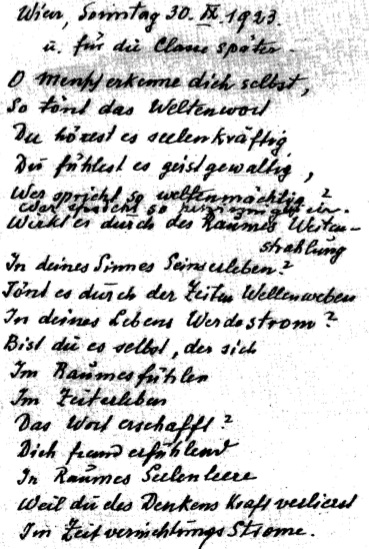 Wien, Sonntag 30. IX. 1923.
u. für die Classe später –
O Mensch erkenne dich selbst,
So tönt das Weltenwort
Du hörest es seelenkräftig
Du fühlest es geistgewaltig,
Wer spricht so weltenmächtig?
Wer spricht so
Wirkt es durch des Raumes Weiten-
strahlung
In deines Sinnes Seinserleben?
Tönt es durch der Zeiten Wellenweben
In deines Lebens Werdestrom?
Bist du es selbst, der sich
Im Raumesfühlen
Im Zeiterleben
Das Wort erschafft?
Dich fremd erfühlend
In Raumes Seelenleere
Weil du des Denkens Kraft verlierst
Im Zeitvernichtungs Strome.